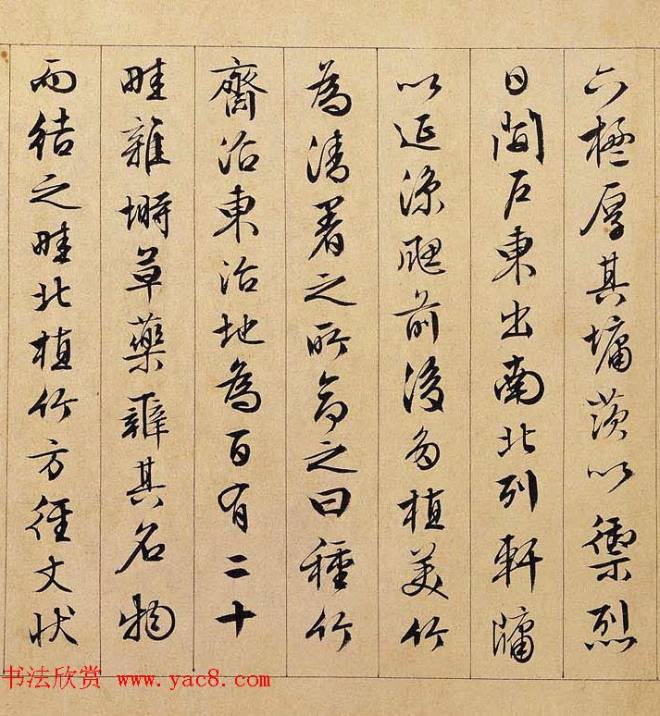 六楹厚其墉茨以禦烈
日開戶東出南北列軒牖
以延涼颸前後多植美竹
為清暑之所命之曰種竹
齋沼東治地為百有二十
畦雜蒔草藥辨其名物
而揭之畦北植竹方徑丈狀
书法欣赏 www.yac8.com